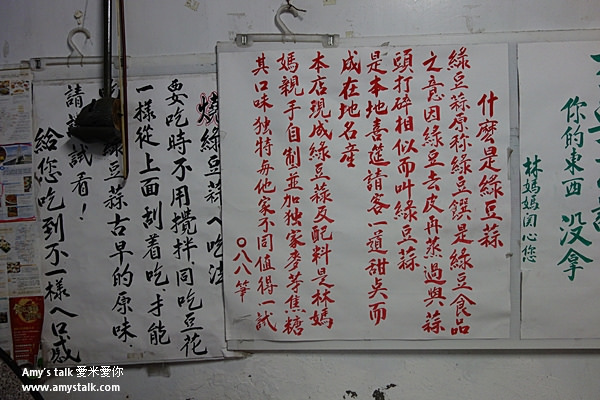 你的東西 没拿
林媽媽関心您
什麼是綠豆蒜
綠豆蒜原称綠豆饌是綠豆食品
之意因綠豆去皮再蒸過與蒜
頭打碎相似而叫綠豆蒜
是本地喜筵請客一道甜点而
成在地名產
本店現成綠豆蒜及配料是林媽
媽親手自制並加独家麥芽焦糖
其口味独特與他家不同值得一試
〇八八筆
燒綠豆蒜へ吃法
要吃時不用攪拌同吃豆花
一樣從上面刮着吃才能
綠豆蒜古早的原味.
請試看！
給您吃到不一樣へ口感
Amy's talk 愛米愛你
www.amystalk.com